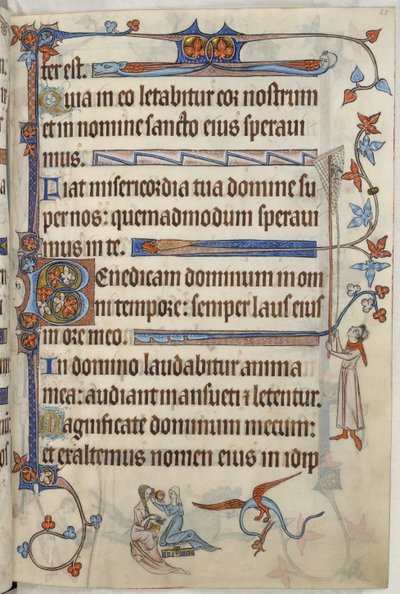 ter est.
Quia in eo letabitur cor nostrum
et in nomine sancto eius speraui
mus.
Fiat misericordia tua domine su
per nos: quemadmodum speraui
mus in te.
Benedicam dominum in om
ni tempore: semper laus eius
in ore meo.
In domino laudabitur anima
mea: audiant mansueti & letentur.
Magnificate dominum mecum:
et exaltemus nomen eius in idip